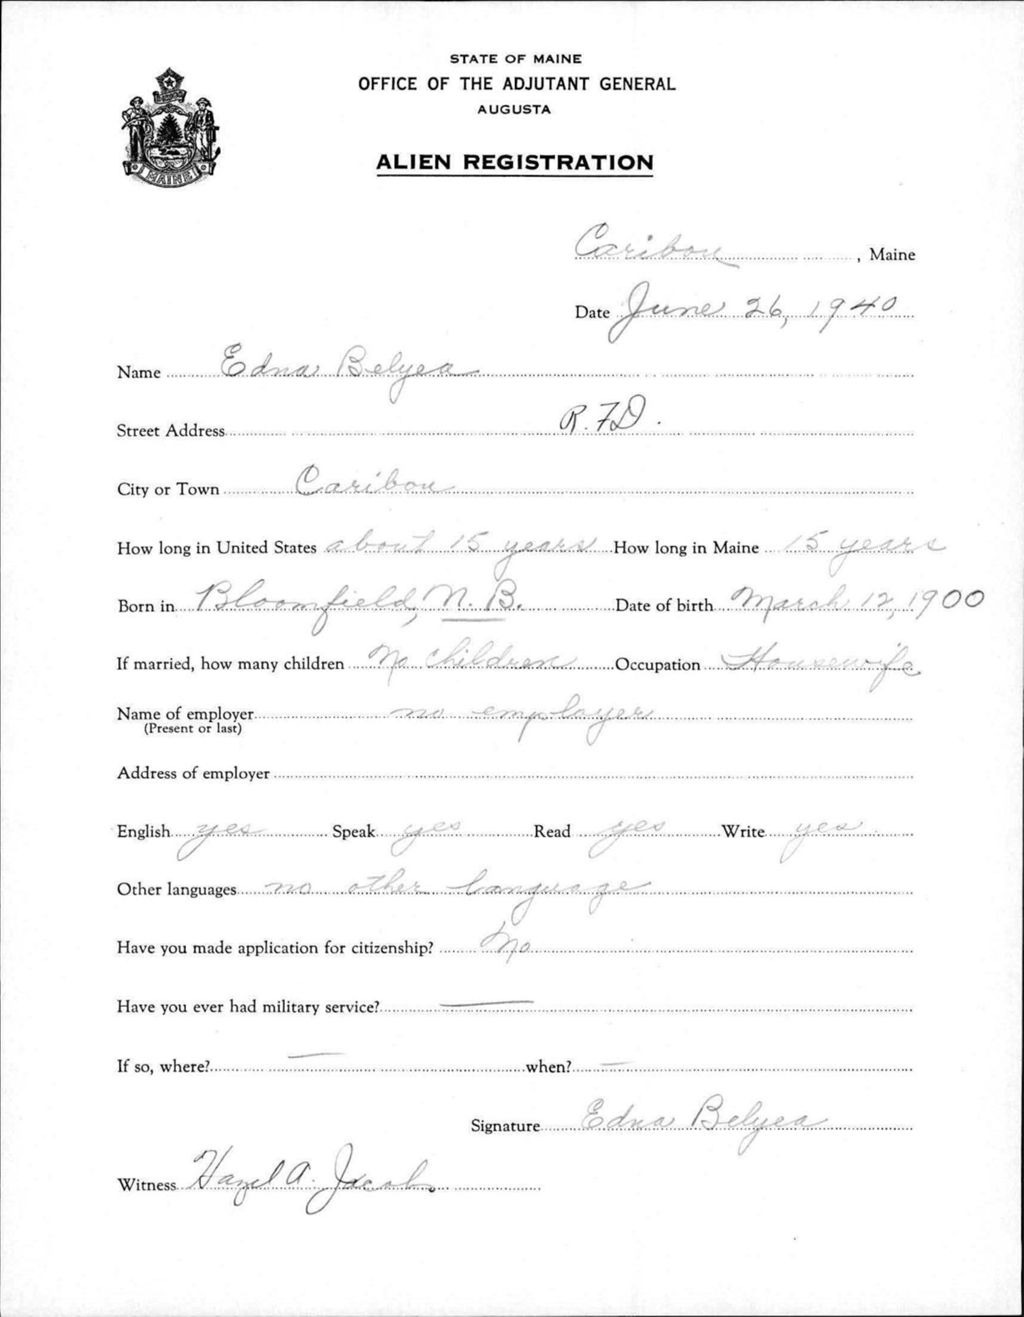 STATE OF MAINE
OFFICE OF THE ADJUTANT GENERAL
AUGUSTA
ALIEN REGISTRATION
MAINE
Caribou, Maine
Date June 26, 1940
Name Edna Belyea
Street Address R.F.D.
City or Town Caribou
How long in United States about 15 years How long in Maine 15 years
Born in Bloomfield, N. B. Date of birth March 12, 1900
If married, how many children No children Occupation Housewife
Name of employer no employer
(Present or last)
Address of employer
English yes Speak yes Read yes Write yes
Other languages no other language
Have you made application for citizenship? No
Have you ever had military service? —
If so, where? — when? —
Signature Edna Belyea
Witness Hazel A. Jacobs